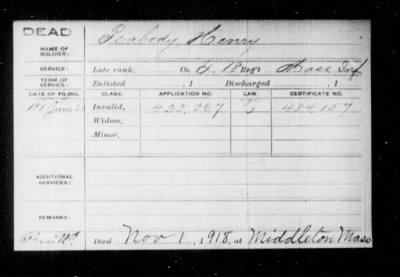 DEAD
NAME OF SOLDIER: Peabody, Henry
SERVICE: Late rank, Co. 18 Reg't Mass Inf
TERM OF SERVICE: Enlisted , 1 Discharged , 1
DATE OF FILING. CLASS. APPLICATION NO. LAW. CERTIFICATE NO.
June Invalid, 422,267 484,157
Widow,
Minor,
ADDITIONAL SERVICES:
REMARKS:
Died Nov 1, 1918, at Middleton Mass